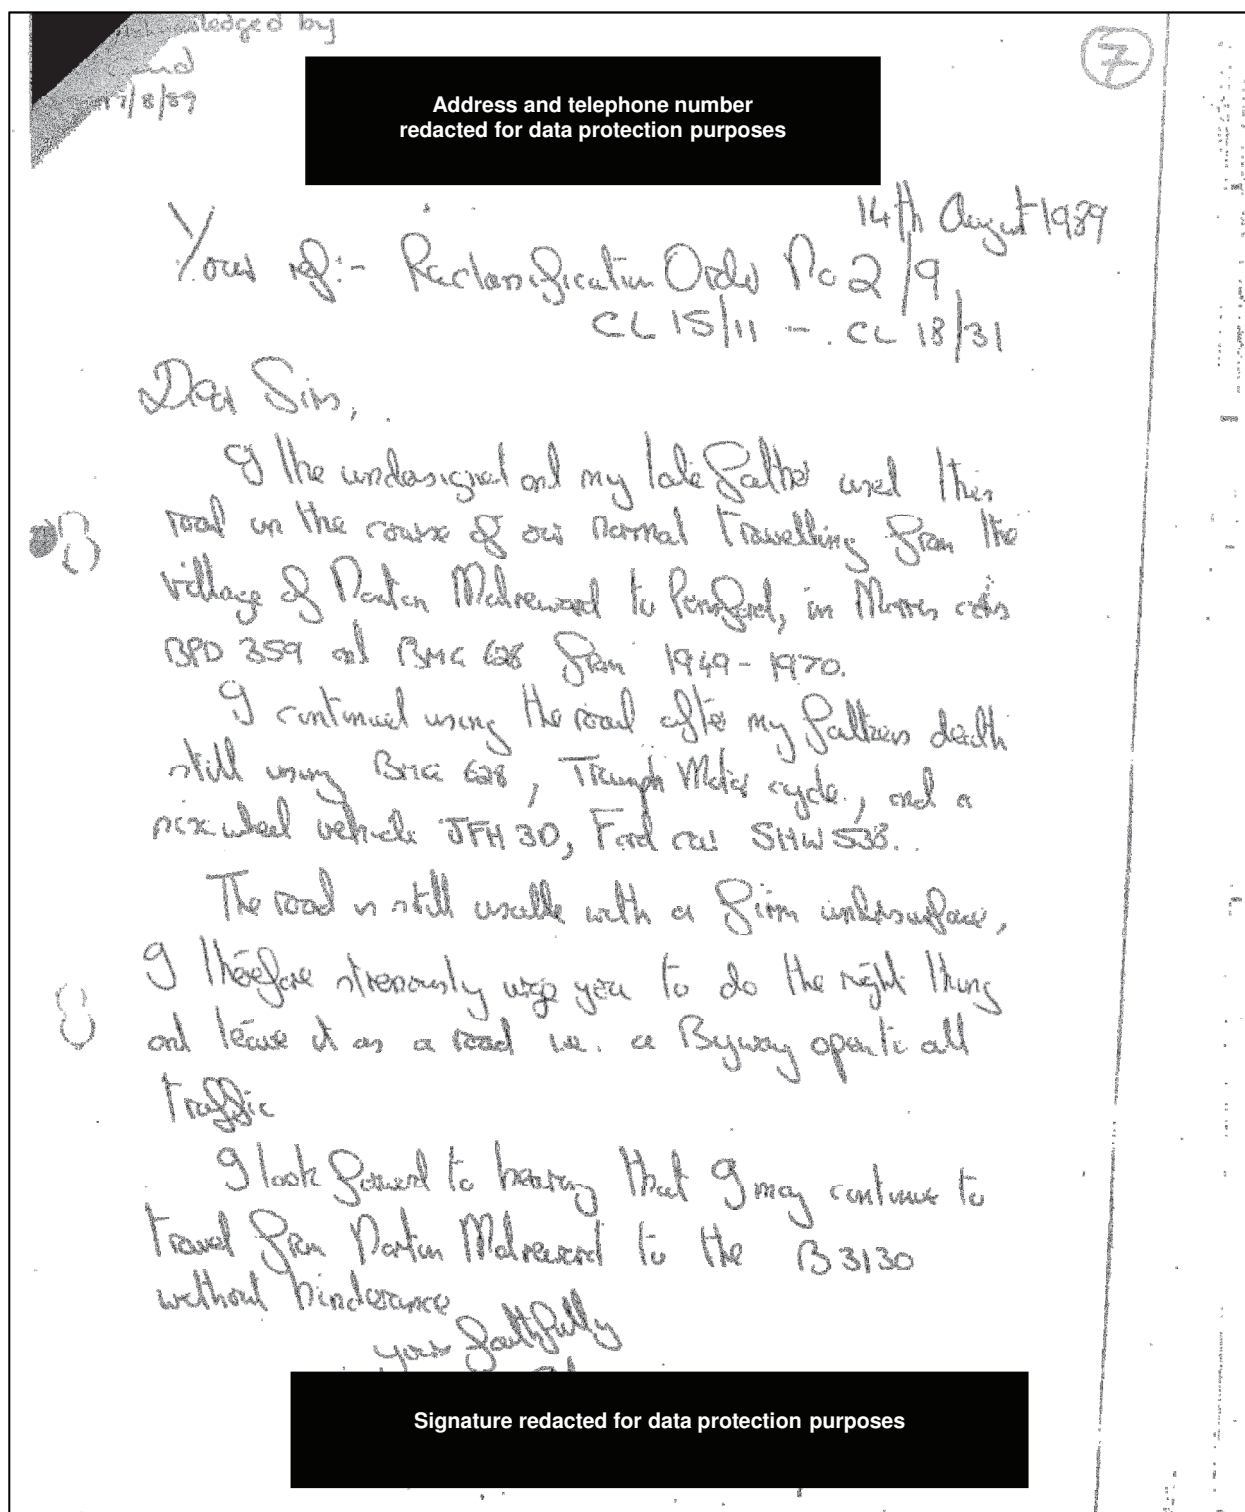 ledged by
17/8/89
7
Address and telephone number
redacted for data protection purposes
14th August 1989
Your ref:- Reclassification Order No 2/9
CL 15/11 - CL 18/31
Dear Sirs,
I the undersigned and my late father used this
road in the course of our normal travelling from the
village of Norton Malreward to Pensford, in Morris cars
BPD 359 and BMG 628 from 1949 - 1970.
I continued using the road after my fathers death
still using BMG 628, Triumph Motor cycle, and a
six wheel vehicle JFH 30, Ford car SHW 538.
The road is still usable with a firm undersurface,
I therefore strenously urge you to do the right thing
and leave it as a road i.e. a Byway open to all
traffic
I look forward to hearing that I may continue to
travel from Norton Malreward to the B3130
without hinderance
yours faithfully
Signature redacted for data protection purposes